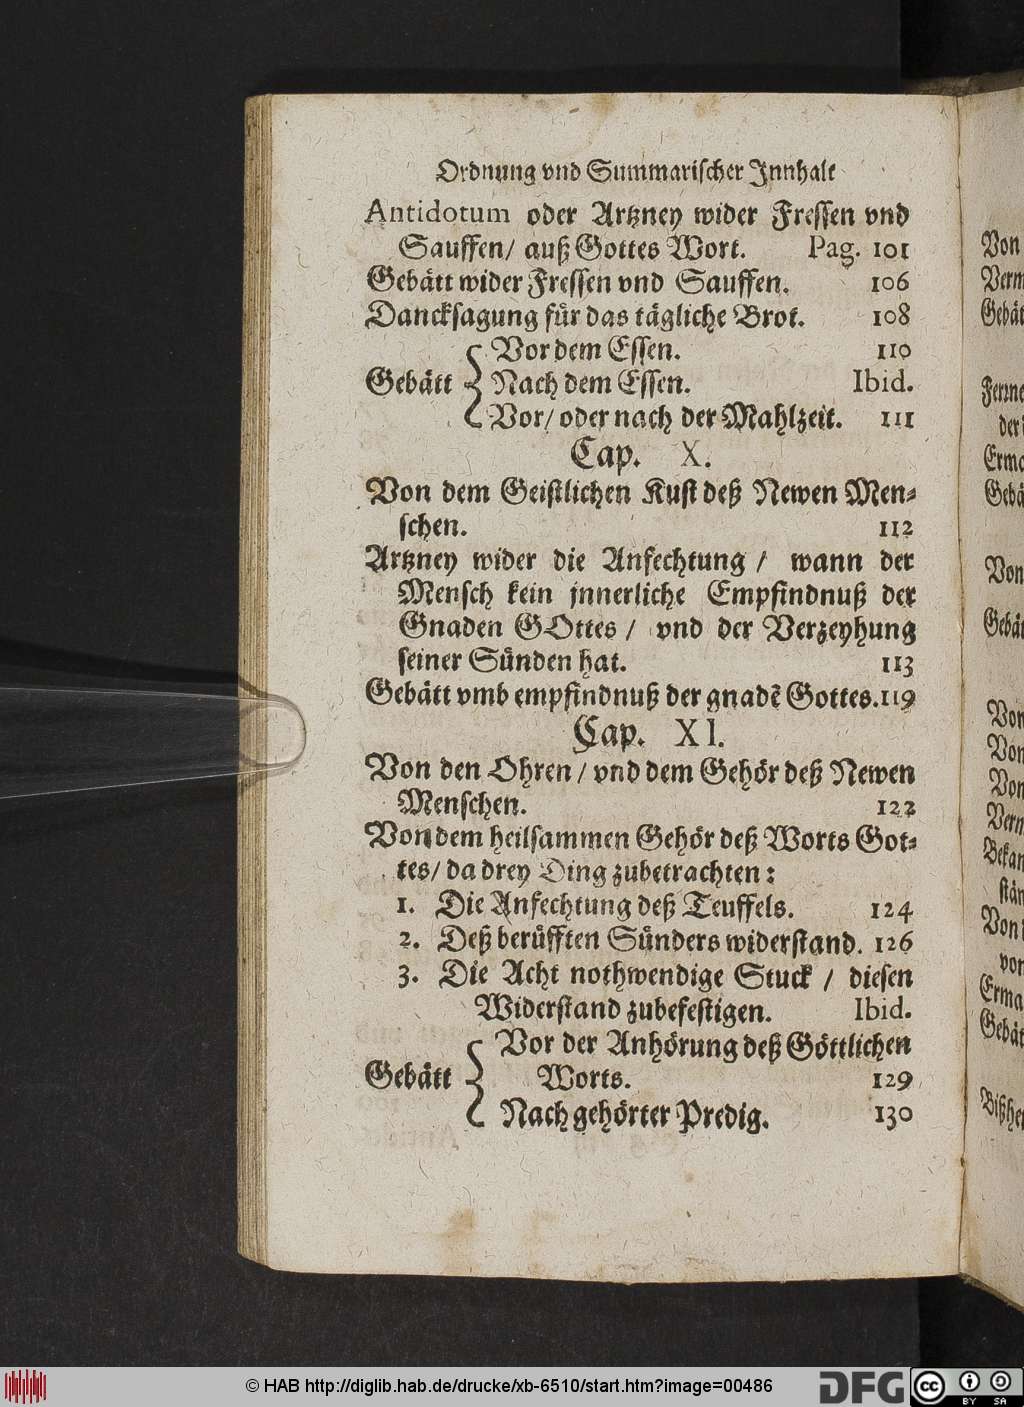 Ordnung vnd Summarischer Innhalt
Antidotum oder Artzney wider Fressen vnd
Sauffen/ auß Gottes Wort. Pag. 101
Gebätt wider Fressen vnd Sauffen. 106
Dancksagung für das tägliche Brot. 108
Vor dem Essen. 110
Gebätt Nach dem Essen. Ibid.
Vor/ oder nach der Mahlzeit. 111
Cap. X.
Von dem Geistlichen Kust deß Newen Men-
schen. 112
Artzney wider die Anfechtung / wann der
Mensch kein jnnerliche Empfindnuß der
Gnaden GOttes / vnd der Verzeyhung
seiner Sünden hat. 113
Gebätt vmb empfindnuß der gnadẽ Gottes. 119
Cap. XI.
Von den Ohren / vnd dem Gehör deß Newen
Menschen. 122
Von dem heilsammen Gehör deß Worts Got-
tes/ da drey Ding zubetrachten:
1. Die Anfechtung deß Teuffels. 124
2. Deß berüfften Sünders widerstand. 126
3. Die Acht nothwendige Stuck / diesen
Widerstand zubefestigen. Ibid.
Vor der Anhörung deß Göttlichen
Gebätt Worts. 129
Nach gehörter Predig. 130
Von
Verm
Gebät
Ferme
der
Erma
Gebä
Von
Gebät
Von
Von
Von
Verm
Bekan
stän
Von
von
Erma
Gebät
Bißher
© HAB http://diglib.hab.de/drucke/xb-6510/start.htm?image=00486
DFG
cc
BY SA